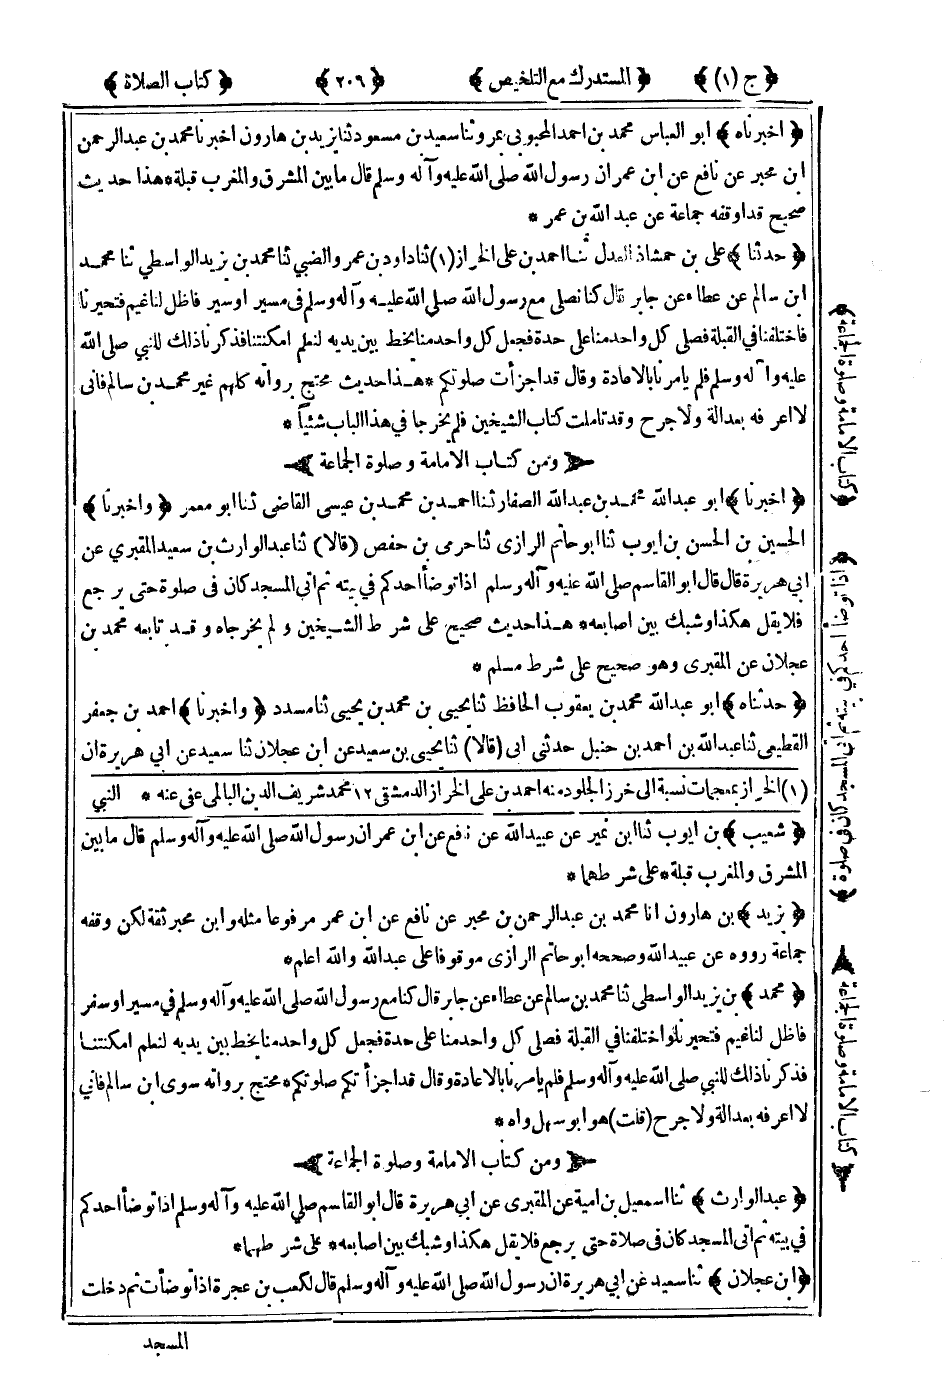 ﴿ ج (١) ﴾ ﴿ المستدرك مع التلخيص ﴾ ﴿ ٢٠٦ ﴾ ﴿ كتاب الصلاة ﴾
﴿ اخبرناه ﴾ ابو العباس محمد بن احمد المحبوبي بمرو ثنا سعيد بن مسعود ثنا يزيد بن هارون اخبرنا محمد بن عبد الرحمن
ابن مجبر عن نافع عن ابن عمر ان رسول الله صلى الله عليه وآله وسلم قال ما بين المشرق والمغرب قبلة * هذا حديث
صحيح قد اوقفه جماعة عن عبد الله بن عمر *
﴿ حدثنا ﴾ على بن حمشاذ العدل ثنا احمد بن على الخراز (١) ثنا داود بن عمرو الضبي ثنا محمد بن يزيد الواسطي ثنا محمد
ابن سالم عن عطاء عن جابر قال كنا نصلى مع رسول الله صلى الله عليه وآله وسلم فى مسير او سير فاظل لنا غيم فتحيرنا
فاختلفنا فى القبلة فصلى كل واحد منا على حدة فجعل كل واحد منا يخط بين يديه لنعلم امكنتنا فذكرنا ذلك للنبي صلى الله
عليه وآله وسلم فلم يامرنا بالاعادة وقال قد اجزأت صلوتكم * هذا حديث محتج برواته كلهم غير محمد بن سالم فانى
لا اعرفه بعدالة ولا جرح وقد تاملت كتاب الشيخين فلم يخرجا في هذا الباب شئياً *
ومن كتاب الامامة وصلوة الجماعة
﴿ اخبرنا ﴾ ابو عبد الله محمد بن عبد الله الصفار ثنا احمد بن محمد بن عيسى القاضى ثنا ابو معمر ﴿ واخبرنا ﴾
الحسين بن الحسن بن ايوب ثنا ابو حاتم الرازى ثنا حرمى بن حفص (قالا) ثنا عبد الوارث بن سعيد المقبري عن
ابي هريرة قال قال ابو القاسم صلى الله عليه وآله وسلم اذا توضأ احدكم في بيته ثم اتى المسجد كان فى صلوة حتى يرجع
فلا يقل هكذا وشبك بين اصابعه * هذا حديث صحيح على شرط الشيخين ولم يخرجاه وقد تابعه محمد بن
عجلان عن المقبرى وهو صحيح على شرط مسلم *
﴿ حدثناه ﴾ ابو عبد الله محمد بن يعقوب الحافظ ثنا يحيى بن محمد بن يحيى ثنا مسدد ﴿ واخبرنا ﴾ احمد بن جعفر
القطيعى ثنا عبد الله بن احمد بن حنبل حدثني ابى (قالا) ثنا يحيى بن سعيد عن ابن عجلان ثنا سعيد عن ابي هريرة ان
(١) الخراز بمعجمات نسبة الى خرز الجلود منه احمد بن على الخراز الدمشقى ١٢ محمد شريف الدين البالمى عفى عنه * النبي
﴿ شعيب ﴾ بن ايوب ثنا ابن نمير عن عبيد الله عن نافع عن ابن عمر ان رسول الله صلى الله عليه وآله وسلم قال ما بين
المشرق والمغرب قبلة * على شرطهما *
﴿ يزيد ﴾ بن هارون انا محمد بن عبد الرحمن بن مجبر عن نافع عن ابن عمر مرفوعا مثله وابن مجبر ثقة لكن وقفه
جماعة رووه عن عبيد الله وصححه ابو حاتم الرازى موقوفا على عبد الله والله اعلم *
﴿ محمد ﴾ بن يزيد الواسطى ثنا محمد بن سالم عن عطاء عن جابر قال كنا مع رسول الله صلى الله عليه وآله وسلم في مسير او سفر
فاظل لنا غيم فتحيرنا واختلفنا في القبلة فصلى كل واحد منا على حدة فجعل كل واحد منا يخط بين يديه لنعلم امكنتنا
فذكرنا ذلك للنبي صلى الله عليه وآله وسلم فلم يامرنا بالاعادة وقال قد اجزأتكم صلوتكم * محتج برواته سوى ابن سالم فاني
لا اعرفه بعدالة ولا جرح (قلت) هو ابو سهل واه *
ومن كتاب الامامة وصلوة الجماعة
﴿ عبد الوارث ﴾ ثنا اسمعيل بن امية عن المقبرى عن ابي هريرة قال ابو القاسم صلى الله عليه وآله وسلم اذا توضأ احدكم
في بيته ثم اتى المسجد كان فى صلاة حتى يرجع فلا يقل هكذا وشبك بين اصابعه * على شرطهما *
﴿ ابن عجلان ﴾ ثنا سعيد عن ابي هريرة ان رسول الله صلى الله عليه وآله وسلم قال لكعب بن عجرة اذا توضأت ثم دخلت
المسجد
﴿ كتاب الامامة وصلوة الجماعة ﴾
كتاب الامامة وصلوة الجماعة